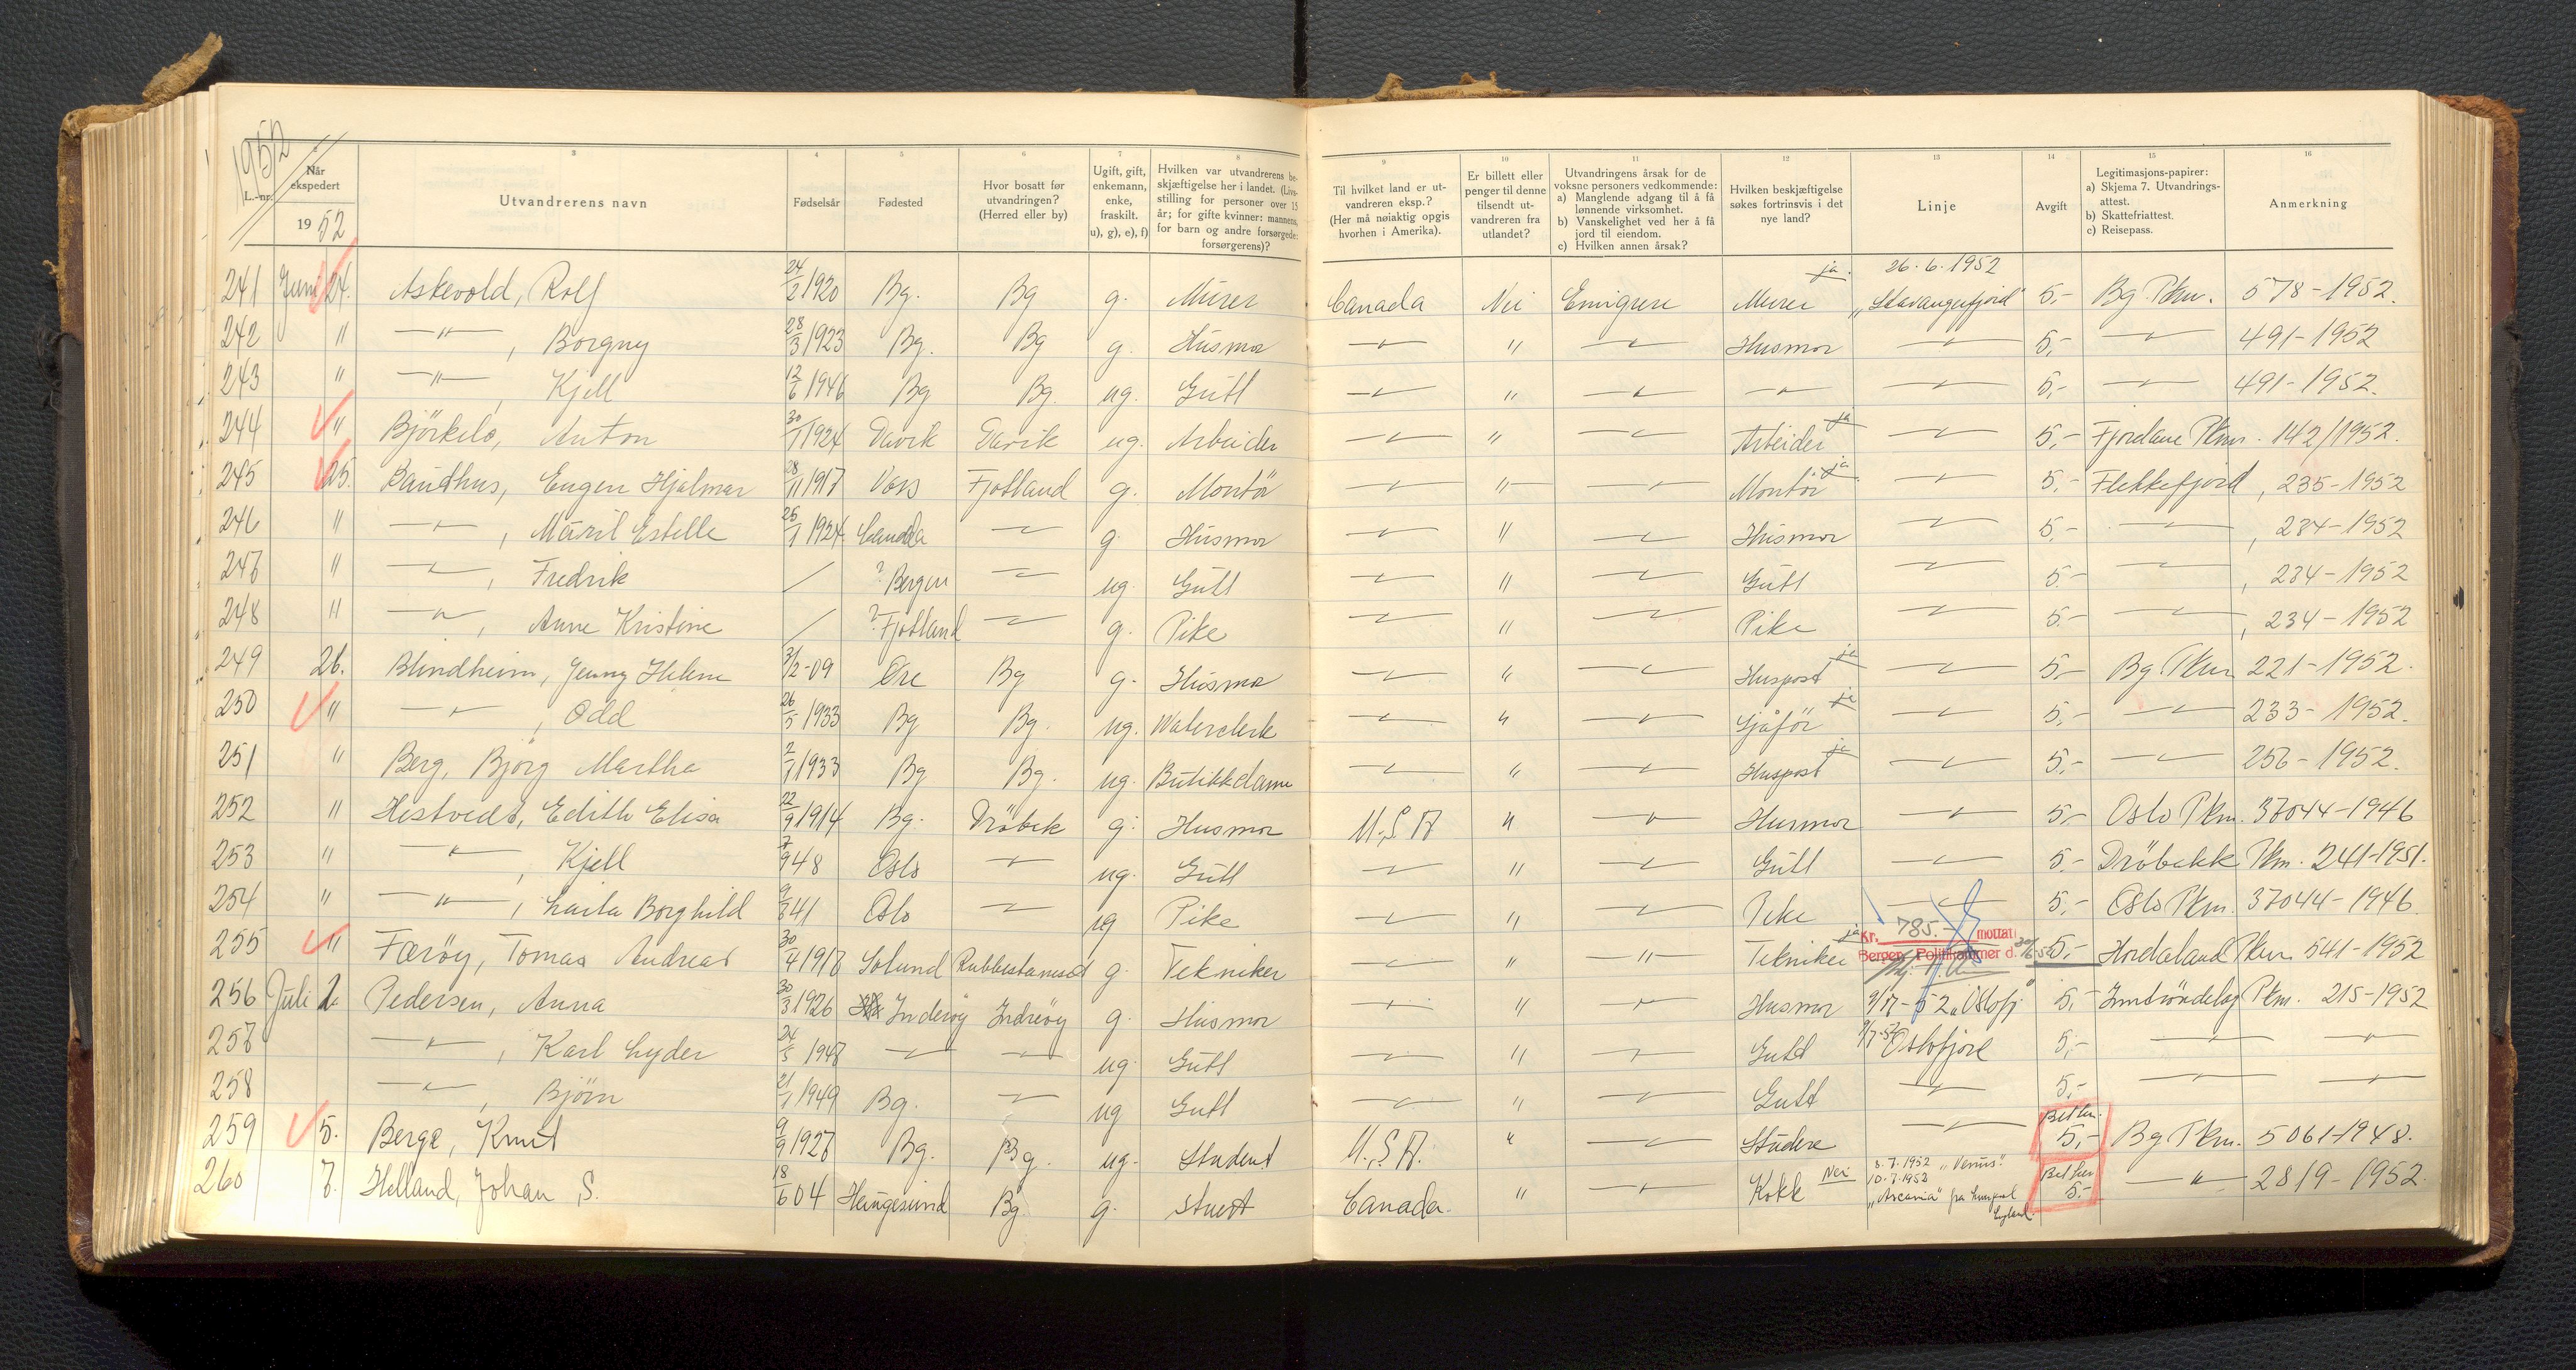 1952
L.-nr.
Når ekspedert
1952
3
Utvandrerens navn
4
Fødselsår
5
Fødested
6
Hvor bosatt før utvandringen? (Herred eller by)
7
Ugift, gift, enkemann, enke, fraskilt. u), g), e), f)
8
Hvilken var utvandrerens beskjæftigelse her i landet. (Livsstilling for personer over 15 år; for gifte kvinner: mannens, for barn og andre forsørgede: forsørgerens)?
9
Til hvilket land er utvandreren eksp.? (Her må nøiaktig opgis hvorhen i Amerika).
10
Er billett eller penger til denne tilsendt utvandreren fra utlandet?
11
Utvandringens årsak for de voksne personers vedkommende:
a) Manglende adgang til å få lønnende virksomhet.
b) Vanskelighet ved her å få jord til eiendom.
c) Hvilken annen årsak?
12
Hvilken beskjæftigelse søkes fortrinsvis i det nye land?
13
Linje
14
Avgift
15
Legitimasjons-papirer:
a) Skjema 7. Utvandrings-attest.
b) Skattefriattest.
c) Reisepass.
16
Anmerkning
241 Juni 24. Askevold, Rolf 24/2 1920 Bg. Bg g. Murer Canada Nei Emigrere Murer ja. 26.6.1952 „Stavangerfjord" 5,- Bg. Pkm. 578-1952.
242 " —"— , Borgny 28/3 1923 Bg. Bg g. Husmor —"— " —"— Husmor —"— 5,- —"— 491-1952
243 " —"— , Kjell 12/6 1946 Bg Bg. ug. Gutt —"— " —"— —"— —"— 5,- —"— 491-1952.
244 " Björkelo, Anton 30/1 1924 Davik Davik ug. Arbeider —"— " —"— Arbeider ja —"— 5,- Fjordane Pkm. 142/1952.
245 25. Sandhus, Eugen Hjalmar 28/11 1917 Voss Fjotland g. Montör —"— " —"— Montör ja —"— 5,- Flekkefjord, 235-1952
246 " —"— , Estelle 26/1 1924 Canada —"— g. Husmor —"— " —"— Husmor —"— 5,- —"— , 234-1952
247 " —"— , Fredrik / ? Bergen —"— ug. Gutt —"— " —"— Gutt —"— 5,- —"— , 234-1952
248 " —"— , Anne Kristine / ? Fjotland —"— g. Pike —"— " —"— Pike —"— 5,- —"— , 234-1952
249 26. Blindheim, Jenny Helene 3/2-09 Øre Bg g. Husmor —"— " —"— Huspost ja —"— 5,- Bg. Pkm 221-1952.
250 " —"— , Odd 26/5 1933 Bg Bg. ug. Waterclerk —"— " —"— Sjåför ja —"— 5,- —"— 233-1952.
251 " Berg, Bjørg Martha 2/1 1933 Bg Bg. ug. Butikkdame —"— " —"— Huspost ja —"— 5,- —"— 256-1952.
252 " Hestvedt, Edith Elisa 22/9 1914 Bg. Dröbak g. Husmor U.S.A " —"— Husmor —"— 5,- Oslo Pkm. 37044-1946
253 " —"— , Kjell 7/9 48 Oslo —"— ug. Gutt —"— " —"— Gutt —"— 5,- Dröbakk Pkm. 241-1951.
254 " —"— , Laila Borghild 9/8 41 Oslo —"— ug Pike —"— " —"— Pike —"— 5,- Oslo Pkm. 37044-1946.
255 " Færöy, Tomas Andreas 30/4 1918 Solund Rubbestadneset g. Tekniker —"— " —"— Tekniker ja Kr. 785.- mottatt Bergen Politikammer d. 5,- Hordaland Pkm. 541-1952
256 Juli 2. Pedersen, Anna 30/3 1926 Inderöy Inderöy g. Husmor —"— " —"— Husmor 9/7-52 „Oslofj." 5,- Inntröndelag Pkm. 215-1952
257 —"— , Karl Lyder 24/5 1948 —"— —"— ug. Gutt —"— " —"— Gutt 9/7-52 Oslofjord 5,- —"— —"—
258 —"— , Björn 21/1 1949 Bg. —"— ug Gutt —"— " —"— Gutt —"— 5,- —"— —"—
259 5. Berge, Knut 9/9 1927 Bg. Bg. ug. Student U.S.A. " —"— Studere —"— Bet. her. 5,- Bg Pkm. 5061-1948.
260 7. Helland, Johan S. 18/6 04 Haugesund Bg. g. Stuert Canada. " —"— Kokk Nei 8.7.1952 „Venus". 10.7.1952 „Ascania" fra Liverpool England. Bet her 5.- —"— 2819-1952.